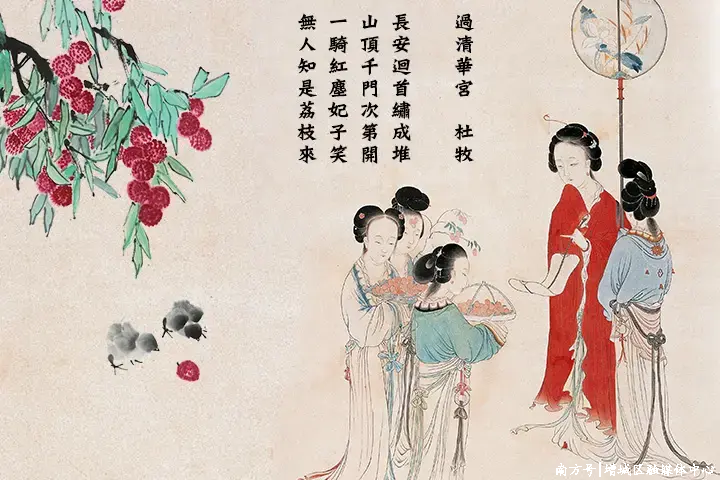 過清華宮 杜牧
長安迴首繡成堆
山頂千門次第開
一騎紅塵妃子笑
無人知是荔枝來
南方号|增城区融媒体中心